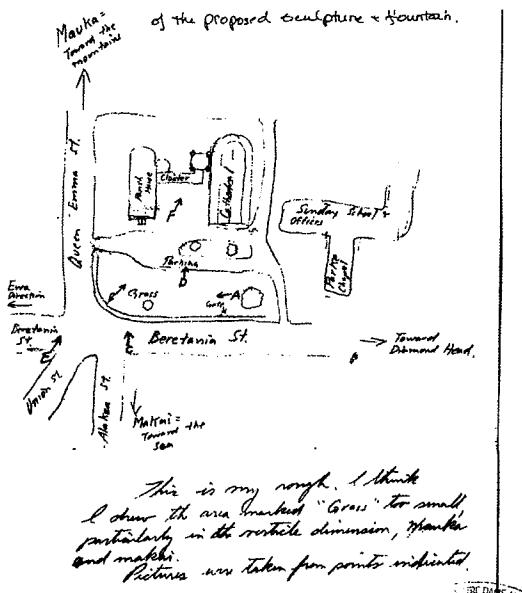 of the proposed sculpture & fountain.
Mauka =
Toward the
mountains
Queen Emma St.
Parish
House
Cloister
Cathedral
F
Sunday School +
Offices
Parke
Chapel
Parking
D
Grass
A
Grass
Ewa
Direction
Beretania
St.
E
Beretania St.
Toward
Diamond Head.
Union St.
Alakea St.
Makai =
Toward the
sea
This is my rough. I think
I drew th area marked "Grass" too small,
particularly in th verticle dimension, mauka
and makai.
Pictures were taken from points indicated.